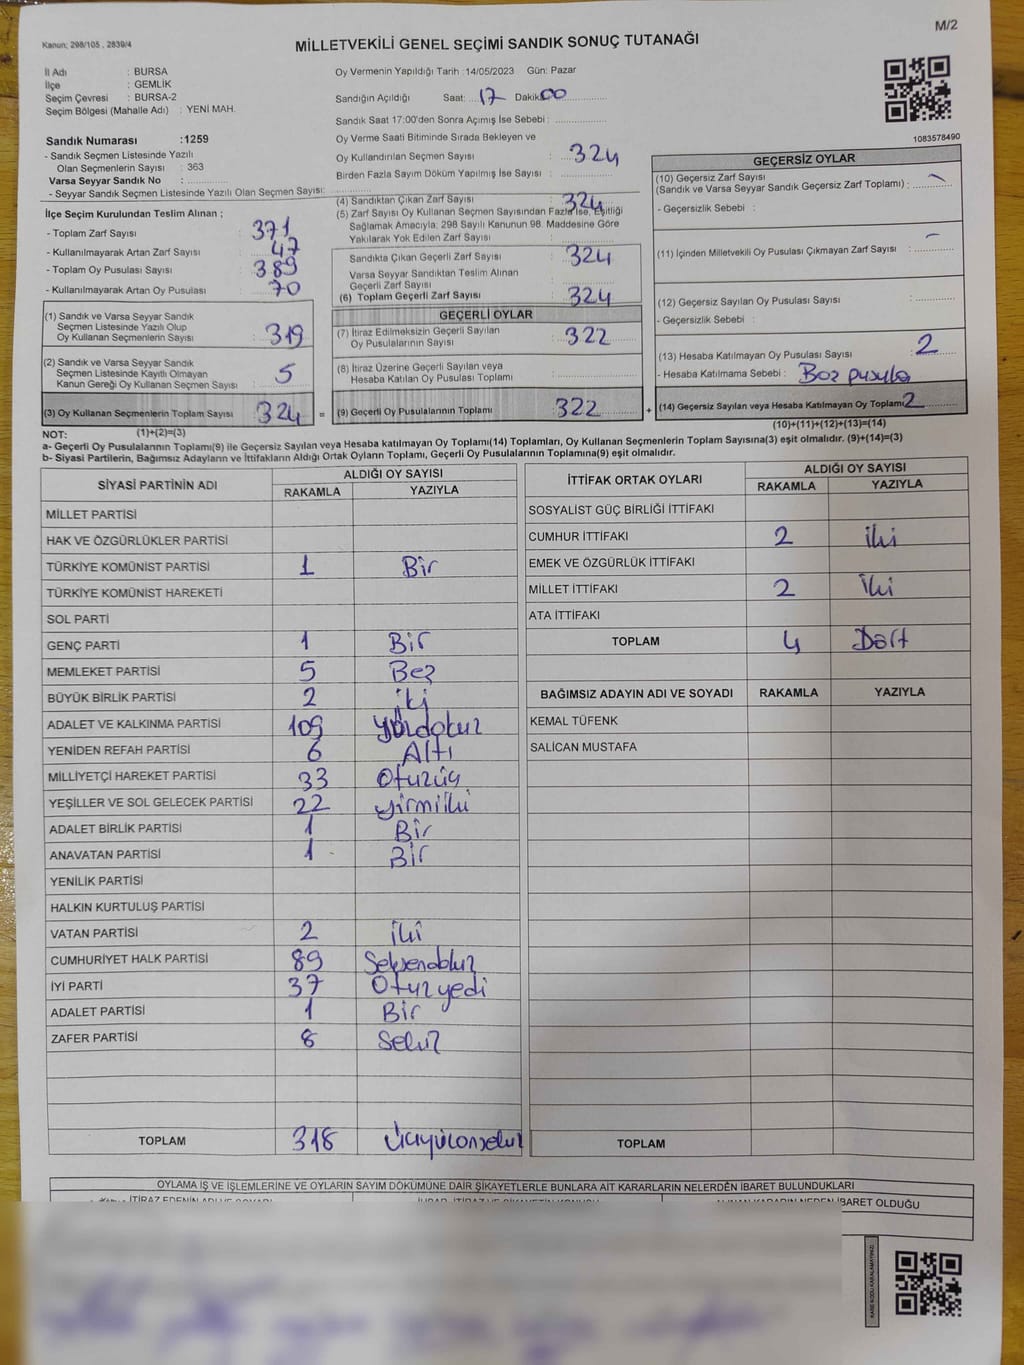 M/2
Kanun; 298/105 , 2839/4
MİLLETVEKİLİ GENEL SEÇİMİ SANDIK SONUÇ TUTANAĞI
İl Adı : BURSA
İlçe : GEMLİK
Seçim Çevresi : BURSA-2
Seçim Bölgesi (Mahalle Adı) : YENİ MAH.
Sandık Numarası :1259
- Sandık Seçmen Listesinde Yazılı
Olan Seçmenlerin Sayısı : 363
Varsa Seyyar Sandık No :
- Seyyar Sandık Seçmen Listesinde Yazılı Olan Seçmen Sayısı:
Oy Vermenin Yapıldığı Tarih :14/05/2023 Gün: Pazar
Sandığın Açıldığı Saat: 17 Dakika: 00
Sandık Saat 17:00'den Sonra Açımış İse Sebebi :
Oy Verme Saati Bitiminde Sırada Bekleyen ve
Oy Kullandırılan Seçmen Sayısı : 324
Birden Fazla Sayım Döküm Yapılmış İse Sayısı :
1083578490
İlçe Seçim Kurulundan Teslim Alınan ;
- Toplam Zarf Sayısı : 371
- Kullanılmayarak Artan Zarf Sayısı : 47
- Toplam Oy Pusulası Sayısı : 389
- Kullanılmayarak Artan Oy Pusulası : 70
(1) Sandık ve Varsa Seyyar Sandık
Seçmen Listesinde Yazılı Olup
Oy Kullanan Seçmenlerin Sayısı : 319
(2) Sandık ve Varsa Seyyar Sandık
Seçmen Listesinde Kayıtlı Olmayan
Kanun Gereği Oy Kullanan Seçmen Sayısı : 5
(3) Oy Kullanan Seçmenlerin Toplam Sayısı : 324 =
(1)+(2)=(3)
(4) Sandıktan Çıkan Zarf Sayısı : 324
(5) Zarf Sayısı Oy Kullanan Seçmen Sayısından Fazla İse, Eşitliği
Sağlamak Amacıyla; 298 Sayılı Kanunun 98. Maddesine Göre
Yakılarak Yok Edilen Zarf Sayısı :
Sandıkta Çıkan Geçerli Zarf Sayısı : 324
Varsa Seyyar Sandıktan Teslim Alınan
Geçerli Zarf Sayısı :
(6) Toplam Geçerli Zarf Sayısı : 324
GEÇERLİ OYLAR
(7) İtiraz Edilmeksizin Geçerli Sayılan
Oy Pusulalarının Sayısı : 322
(8) İtiraz Üzerine Geçerli Sayılan veya
Hesaba Katılan Oy Pusulası Toplamı :
(9) Geçerli Oy Pusulalarının Toplamı : 322 +
GEÇERSİZ OYLAR
(10) Geçersiz Zarf Sayısı
(Sandık ve Varsa Seyyar Sandık Geçersiz Zarf Toplamı) : -
- Geçersizlik Sebebi :
(11) İçinden Milletvekili Oy Pusulası Çıkmayan Zarf Sayısı : -
(12) Geçersiz Sayılan Oy Pusulası Sayısı :
- Geçersizlik Sebebi :
(13) Hesaba Katılmayan Oy Pusulası Sayısı : 2
- Hesaba Katılmama Sebebi : Boz pusula
(14) Geçersiz Sayılan veya Hesaba Katılmayan Oy Toplamı: 2
(10)+(11)+(12)+(13)=(14)
NOT:
a- Geçerli Oy Pusulalarının Toplamı(9) ile Geçersiz Sayılan veya Hesaba katılmayan Oy Toplamı(14) Toplamları, Oy Kullanan Seçmenlerin Toplam Sayısına(3) eşit olmalıdır. (9)+(14)=(3)
b- Siyasi Partilerin, Bağımsız Adayların ve İttifakların Aldığı Ortak Oyların Toplamı, Geçerli Oy Pusulalarının Toplamına(9) eşit olmalıdır.
SİYASİ PARTİNİN ADI ALDIĞI OY SAYISI
RAKAMLA YAZIYLA
MİLLET PARTİSİ
HAK VE ÖZGÜRLÜKLER PARTİSİ
TÜRKİYE KOMÜNİST PARTİSİ 1 Bir
TÜRKİYE KOMÜNİST HAREKETİ
SOL PARTİ
GENÇ PARTİ 1 Bir
MEMLEKET PARTİSİ 5 Beş
BÜYÜK BİRLİK PARTİSİ 2 iki
ADALET VE KALKINMA PARTİSİ 109 yüzdokuz
YENİDEN REFAH PARTİSİ 6 Altı
MİLLİYETÇİ HAREKET PARTİSİ 33 Otuzüç
YEŞİLLER VE SOL GELECEK PARTİSİ 22 yirmiiki
ADALET BİRLİK PARTİSİ 1 Bir
ANAVATAN PARTİSİ 1 Bir
YENİLİK PARTİSİ
HALKIN KURTULUŞ PARTİSİ
VATAN PARTİSİ 2 iki
CUMHURİYET HALK PARTİSİ 89 Seksendokuz
İYİ PARTİ 37 Otuzyedi
ADALET PARTİSİ 1 Bir
ZAFER PARTİSİ 8 Sekiz
TOPLAM 318 Üçyüzonsekiz
İTTİFAK ORTAK OYLARI ALDIĞI OY SAYISI
RAKAMLA YAZIYLA
SOSYALİST GÜÇ BİRLİĞİ İTTİFAKI
CUMHUR İTTİFAKI 2 iki
EMEK VE ÖZGÜRLÜK İTTİFAKI
MİLLET İTTİFAKI 2 İki
ATA İTTİFAKI
TOPLAM 4 Dört
BAĞIMSIZ ADAYIN ADI VE SOYADI RAKAMLA YAZIYLA
KEMAL TÜFENK
SALİCAN MUSTAFA
TOPLAM
OYLAMA İŞ VE İŞLEMLERİNE VE OYLARIN SAYIM DÖKÜMÜNE DAİR ŞİKAYETLERLE BUNLARA AİT KARARLARIN NELERDEN İBARET BULUNDUKLARI
İBARET OLDUĞU